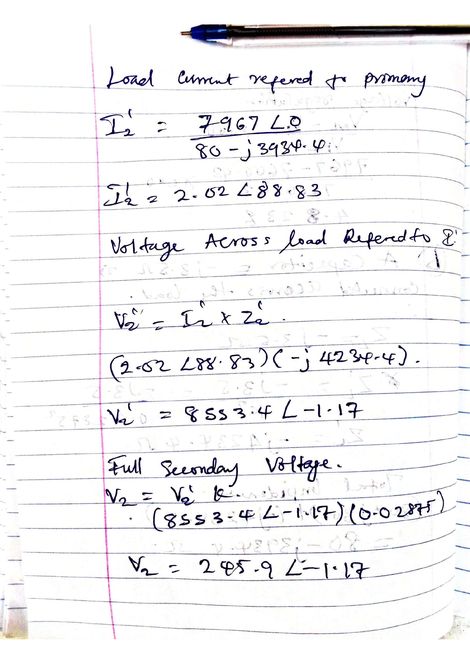 Load Current refered to primary
I₂' = 7967 ∠.0 / 80 - j3934.4
I₂' = 2.02 ∠88.83
Voltage Across load Refered to
V₂' = I₂' x Z₂'.
(2.02 ∠88.83)(-j 4234.4).
V₂' = 8553.4 ∠-1.17
Full Secondary Voltage.
V₂ = V₂' K.
(8553.4 ∠-1.17)(0.02875)
V₂ = 245.9 ∠-1.17